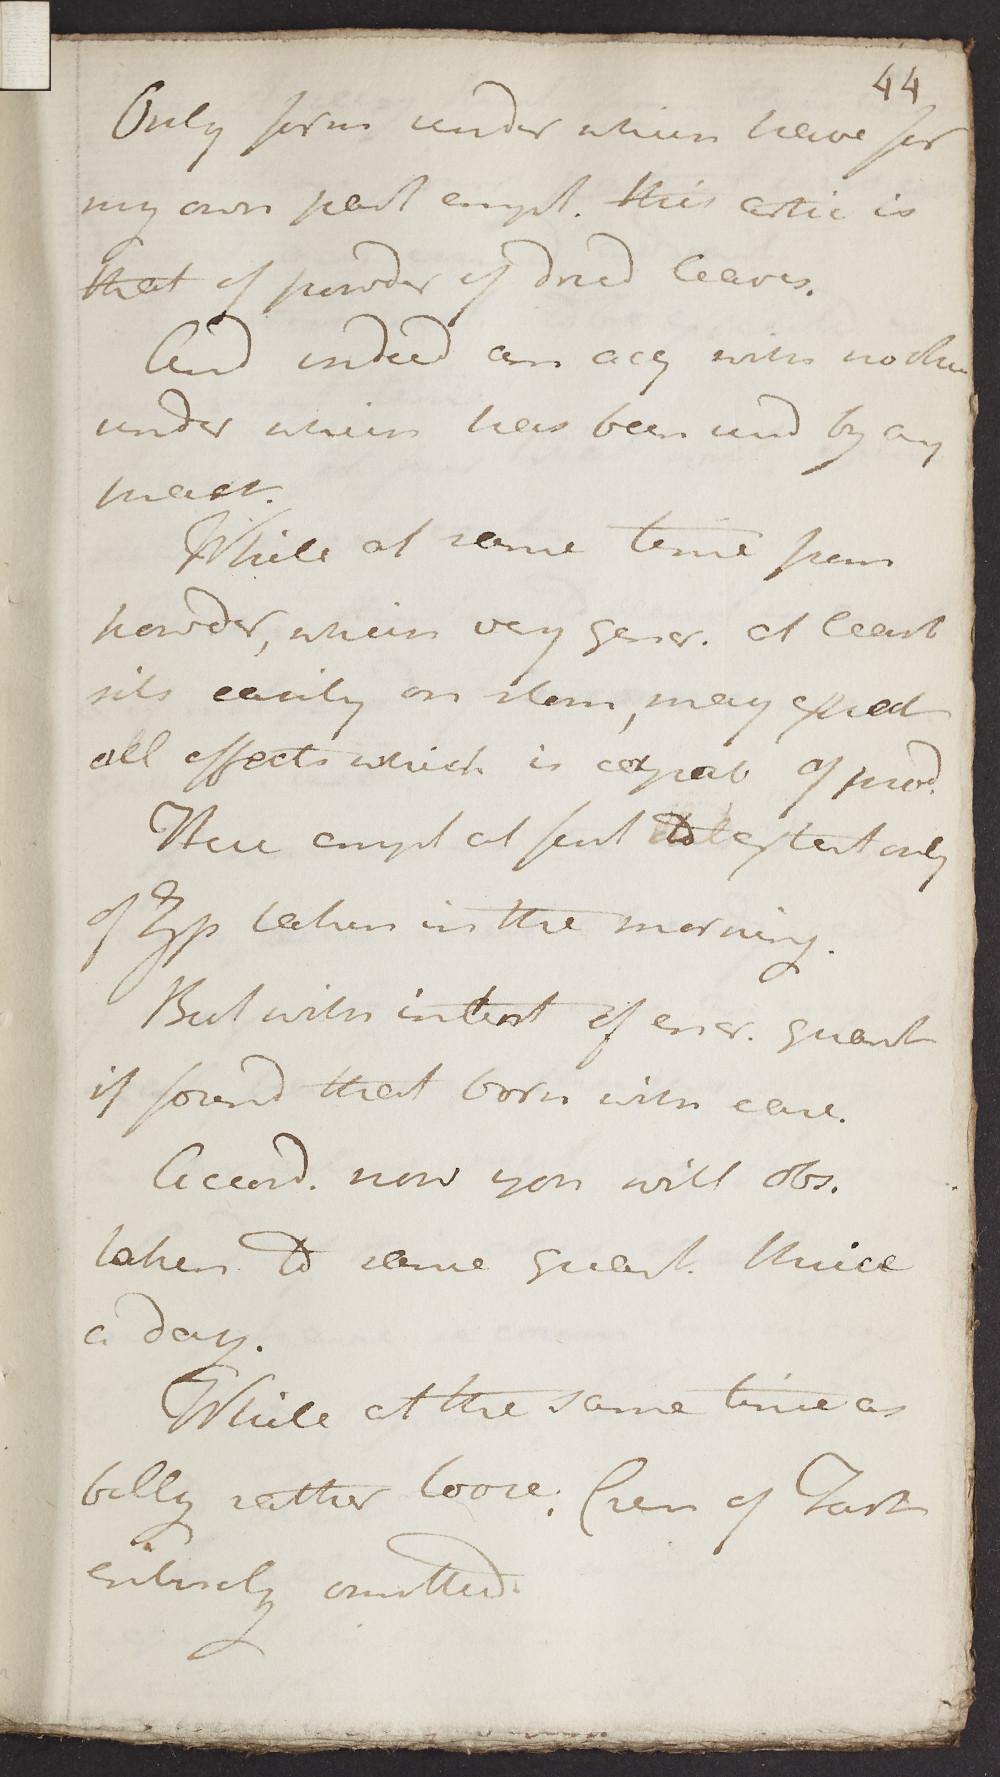 44
Only form under which have for
my own part empl. this artic is
that of powder of dried leaves.
And indeed am acq with no other
under which has been used by any
pract.
While at same time from
powder, which very gener. at least
sits easily on stom, may expect
all effects which is capab of prod.
Here empl at first to extent only
of taken in the morning.
But with intent of encr. quant
if found that born with ease.
Accord. now you will obs.
taken to same quant. thrice
a day.
While at the same time as
belly rather loose. Crem of Tart
entirely omitted.